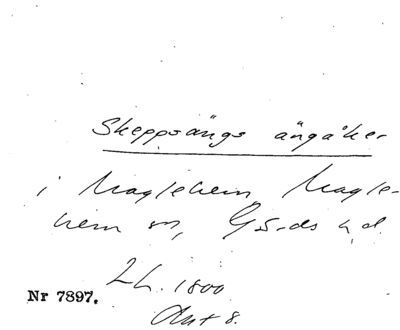 Skeppsängs ängåker
i Maglehem, Magle-
hem sn, Gärds hd.
Lh. 1800
Nr 7897.
Akt 8.